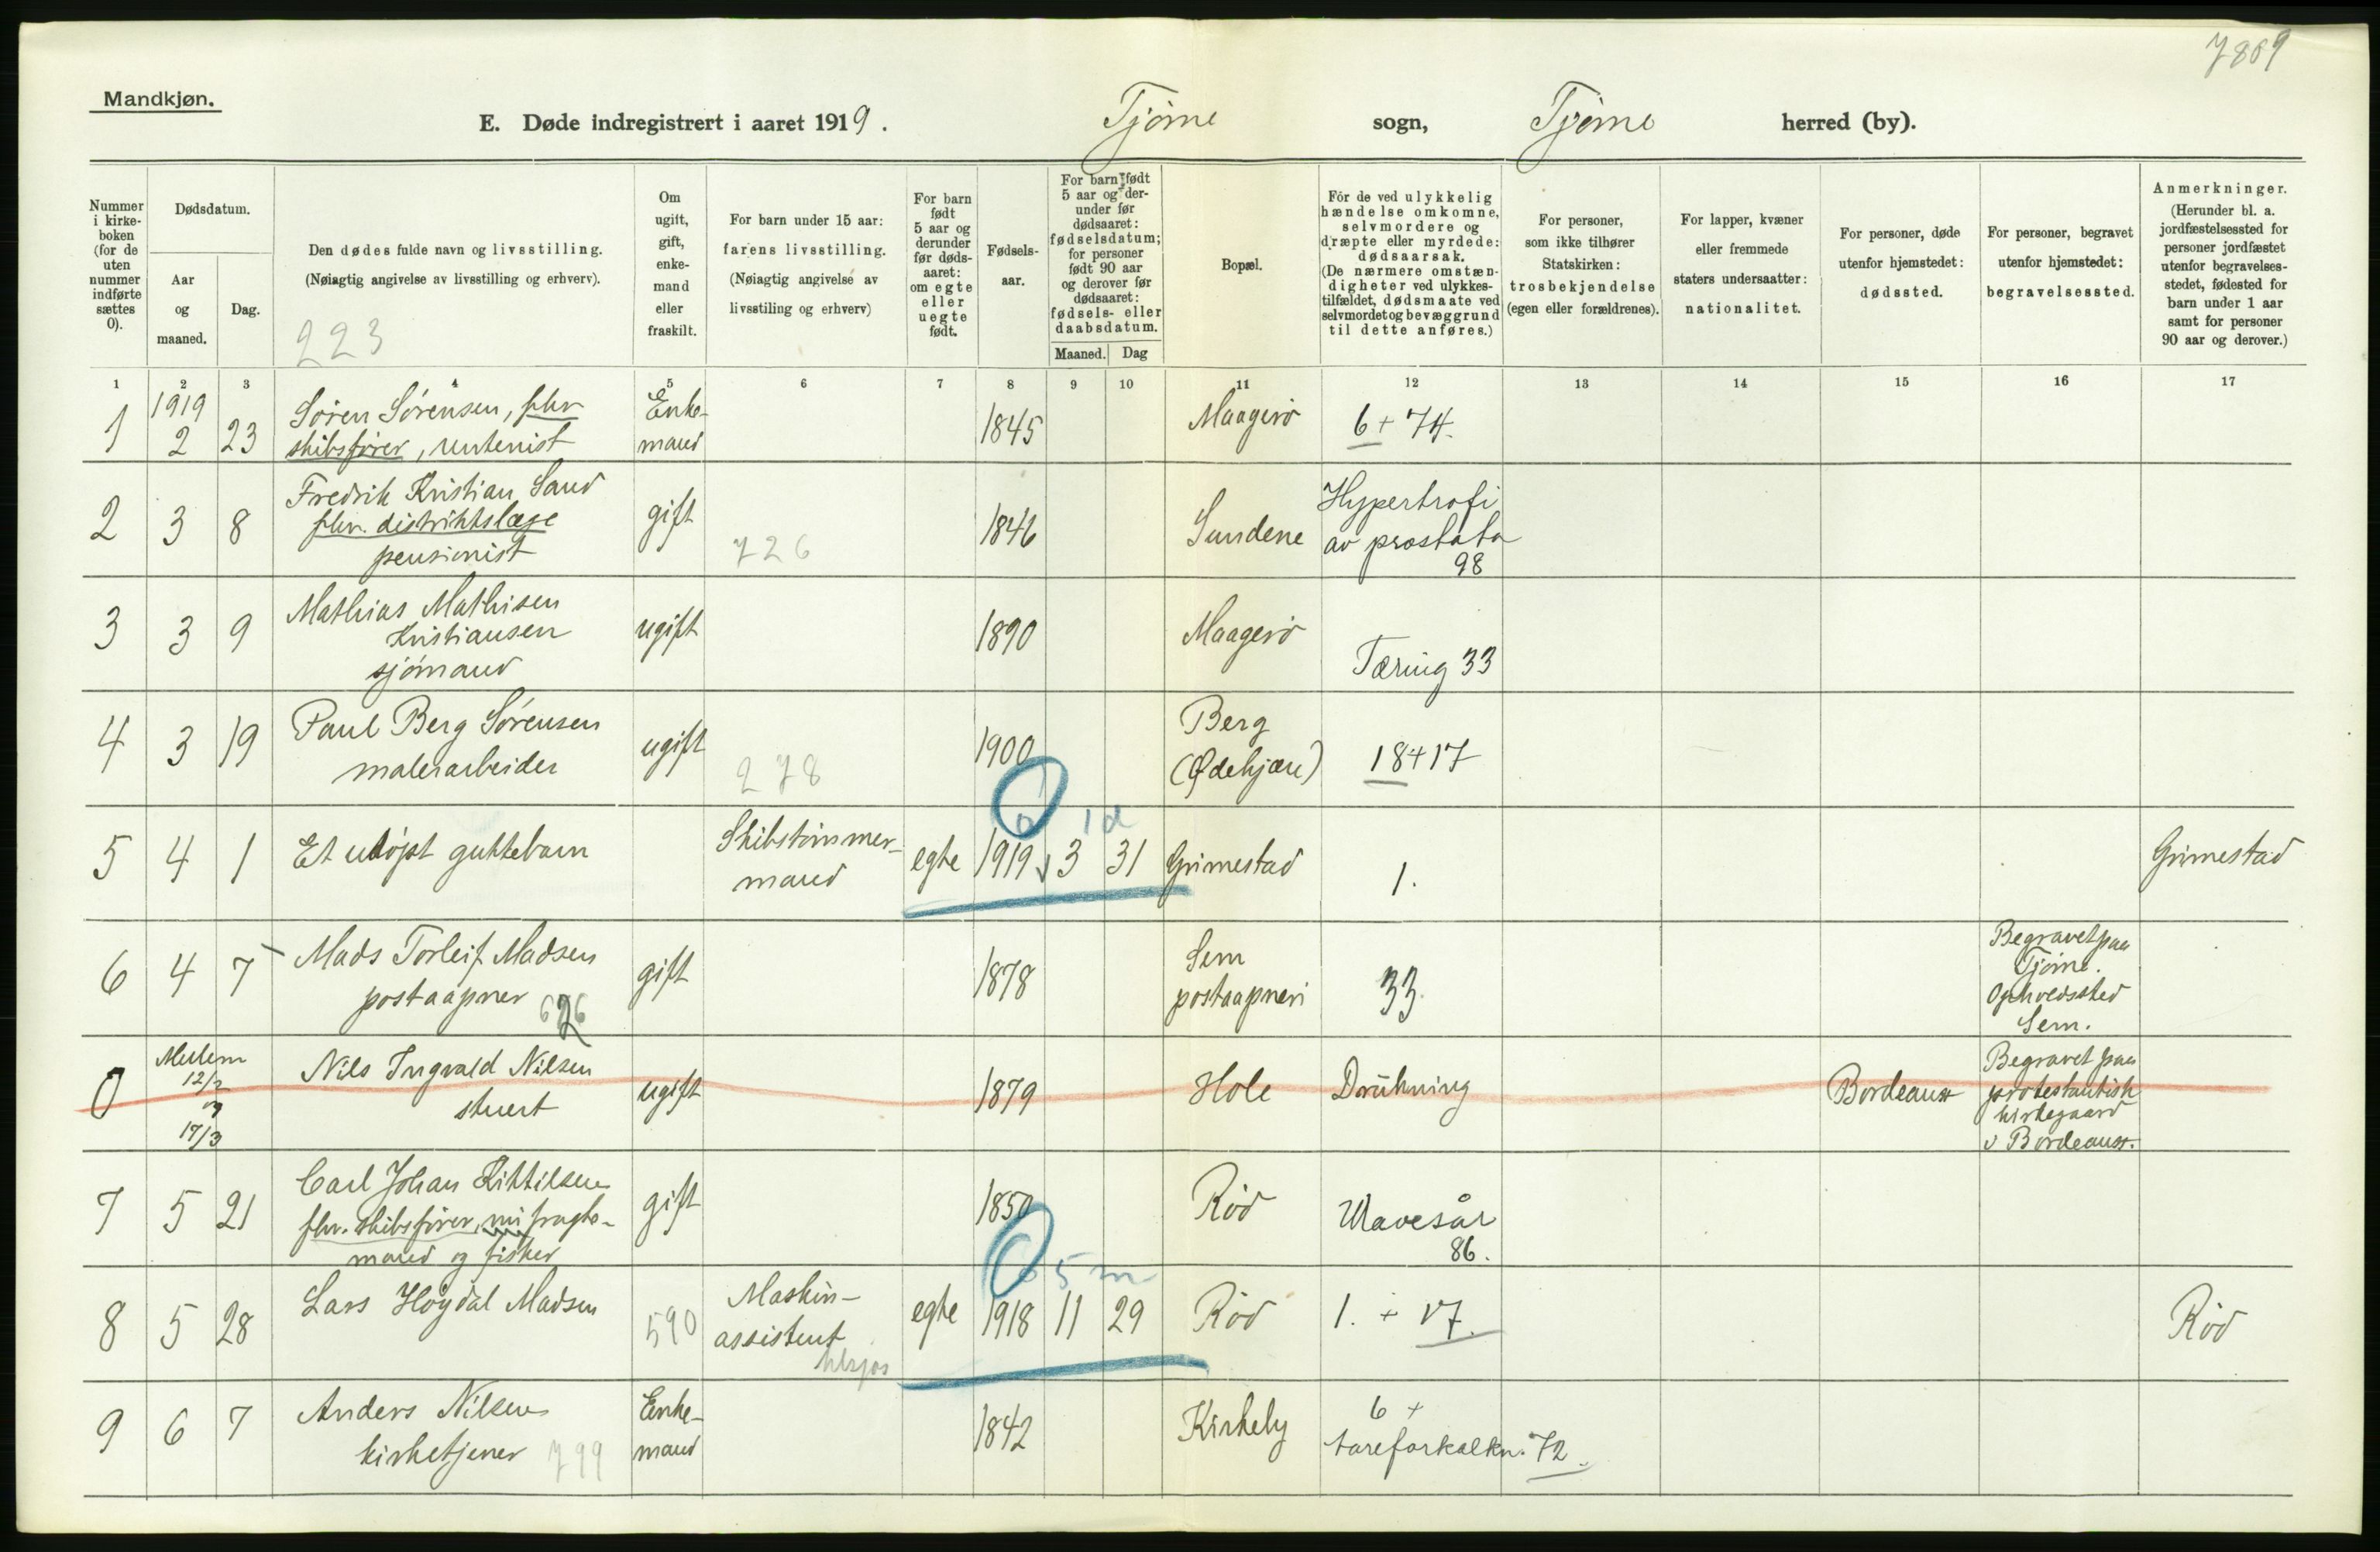 7889
Mandkjøn.
E. Døde indregistrert i aaret 1919.
Tjøme sogn, Tjøme herred (by).
Nummer i kirke-boken (for de uten nummer indførte sættes 0).
Dødsdatum.
Aar og maaned.
Dag.
Den dødes fulde navn og livsstilling.
(Nøiagtig angivelse av livsstilling og erhverv).
223
Om ugift, gift, enke-mand eller fraskilt.
For barn under 15 aar: farens livsstilling.
(Nøiagtig angivelse av livsstiling og erhverv)
For barn født 5 aar og derunder før døds-aaret: om egte eller uegte født.
Fødsels-aar.
For barn født 5 aar og der-under før dødsaaret: fødselsdatum; for personer født 90 aar og derover før dødsaaret: fødsels- eller daabsdatum.
Maaned. Dag
Bopæl.
For de ved ulykkelig hændelse omkomne, selvmordere og dræpte eller myrdede: dødsaarsak.
(De nærmere omstæn-digheter ved ulykkes-tilfældet, dødsmaate ved selvmordet og bevæggrund til dette anføres.)
For personer, som ikke tilhører Statskirken: trosbekjendelse (egen eller forældrenes).
For lapper, kvæner eller fremmede staters undersaatter: nationalitet.
For personer, døde utenfor hjemstedet: dødssted.
For personer, begravet utenfor hjemstedet: begravelsessted.
Anmerkninger.
(Herunder bl. a. jordfæstelsessted for personer jordfæstet utenfor begravelses-stedet, fødested for barn under 1 aar samt for personer 90 aar og derover.)
1 2 3 4 5 6 7 8 9 10 11 12 13 14 15 16 17
1919
1 2 23 Søren Sørensen, fhv skibsfører, rentenist Enke-mand 1845 Maagerø 6 + 74.
2 3 8 Fredrik Kristian Sand fhv. distriktslæge pensionist gift 726 1846 Sundene Hypertrofi av prostata 98
3 3 9 Mathias Mathisen Kristiansen sjømand ugift 1890 Maagerø Tæring 33
4 3 19 Paul Berg Sørensen malerarbeider ugift 278 1900 Berg (Ødekjær) 18+17
0 1 d
5 4 1 Et udøpt guttebarn Skibstømmer-mand egte 1919 3 31 Grimestad 1. Grimestad
6 4 7 Mads Torleif Madsen postaapner 626 gift 1878 Sem postaapneri 33. Begravet paa Tjøme. Opholdssted Sem.
0 Mellem 12/2 og 17/3 Nils Ingvald Nilsen stuert ugift 1879 Hole Drukning Bordeaux Begravet paa protestantisk kirkegaard v Bordeaux.
7 5 21 Carl Johan Kittilsen fhv. skibsfører, nu fragte-mand og fisker gift 1850 Rød Mavesår 86.
0 5 m
8 5 28 Lars Høydal Madsen 590 Maskin-assistent egte 1918 11 29 Rød 1. + 17. Rød
9 6 7 Anders Nilsen kirketjener 799 Enke-mand 1842 Kirkeby 6 + åreforkalkn. 72.